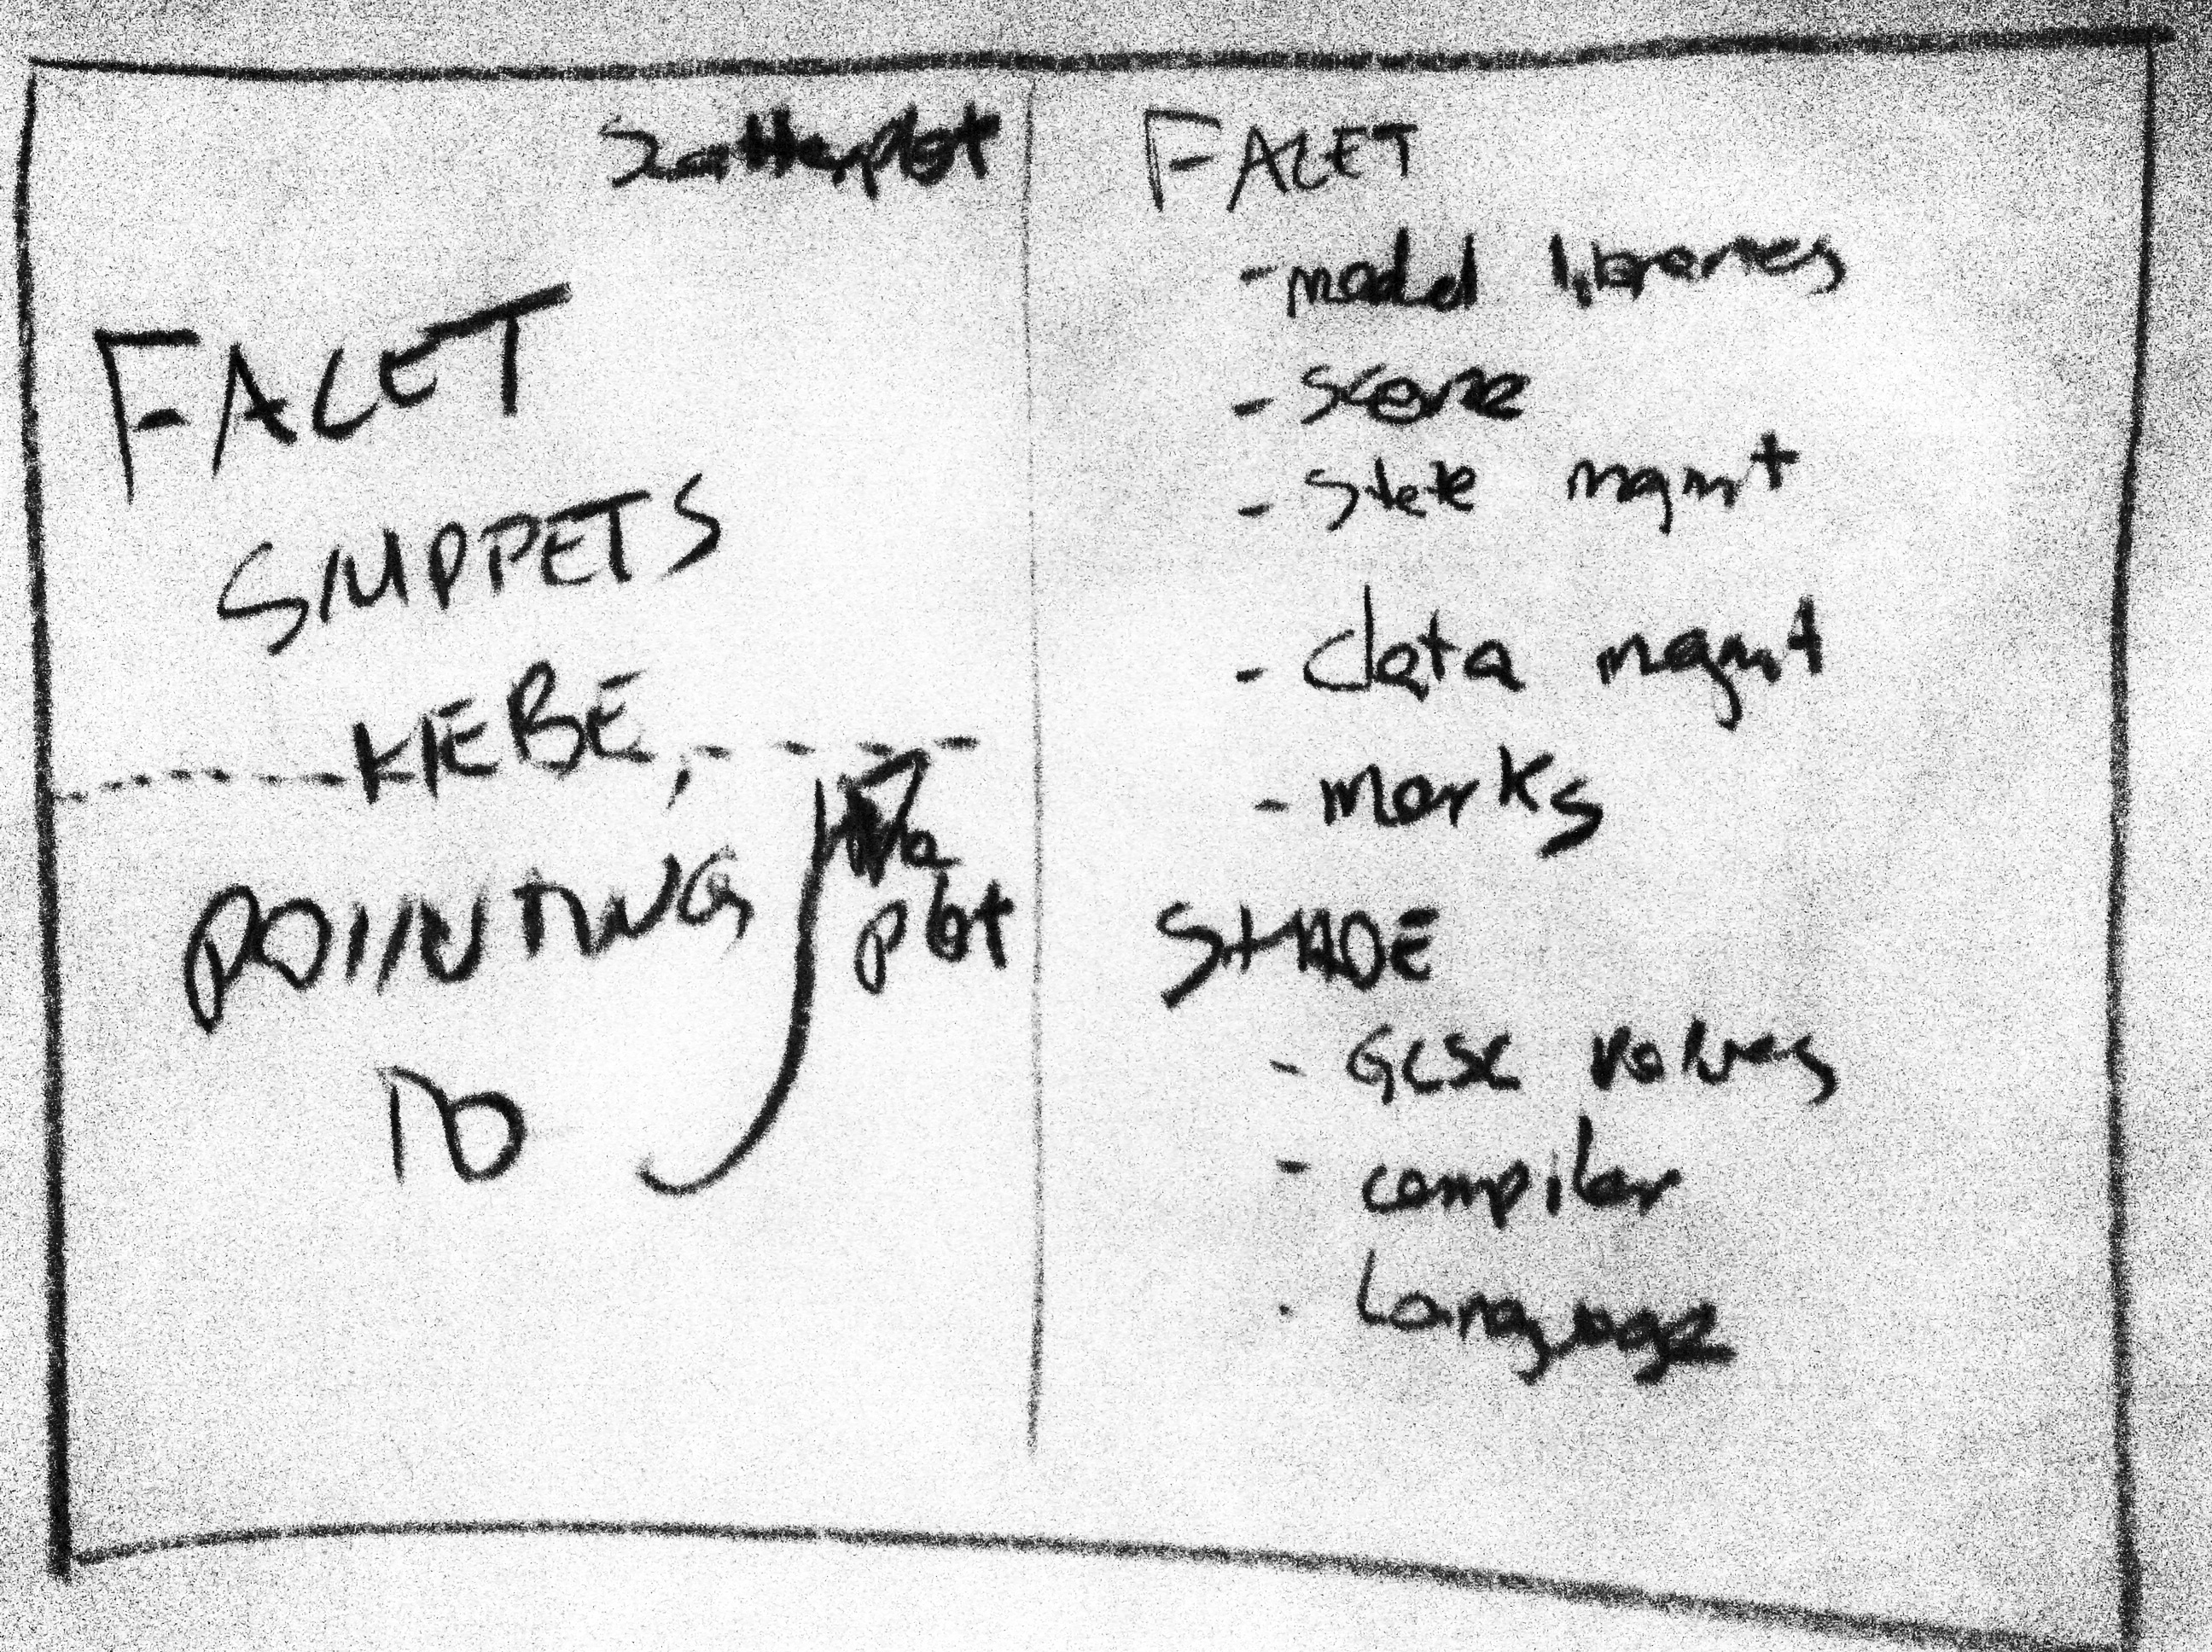 Scatterplot
FACET
SNIPPETS
HERE,
POINTING
TO
plot
FACET
- model libraries
- scene
- state mgmt
- data mgmt
- marks
SHADE
- GLSL values
- compiler
- language